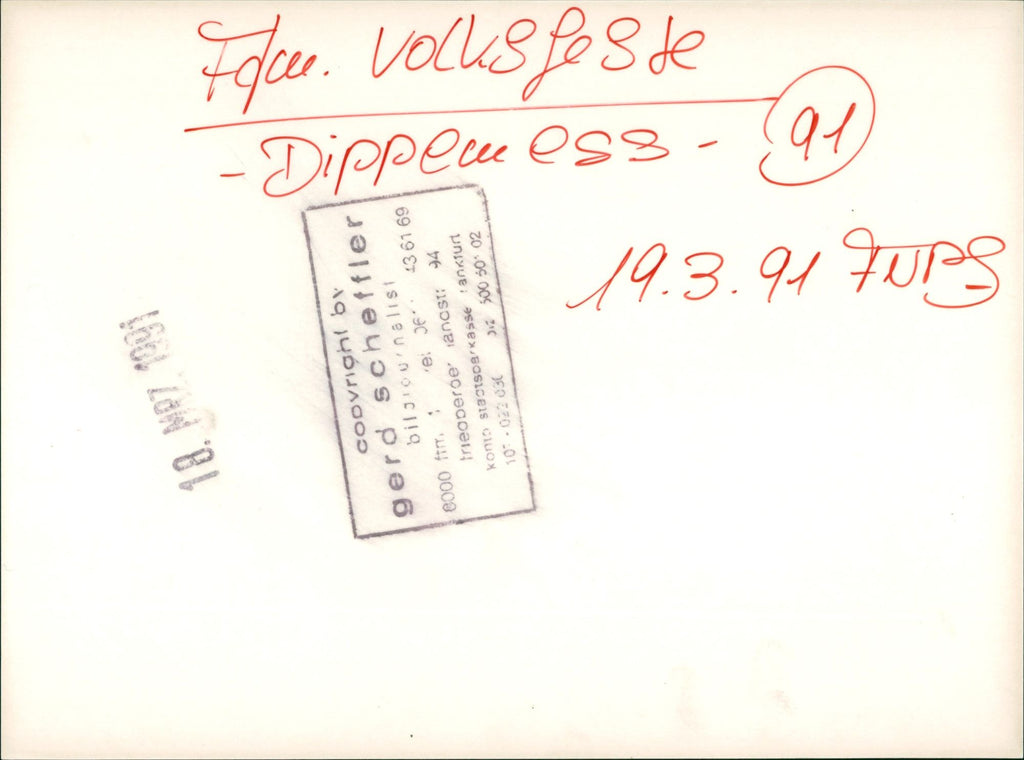 Ffm. Volksfeste
- Dippemess - 91
19.3.91 FNPS
18. MRZ. 1991
copyright by
gerd scheffler
bildjournalist
6000 ffm. 1 tel. 43 61 69
friedberger landstr. 94
konto stadtsparkasse frankfurt
500 501 02